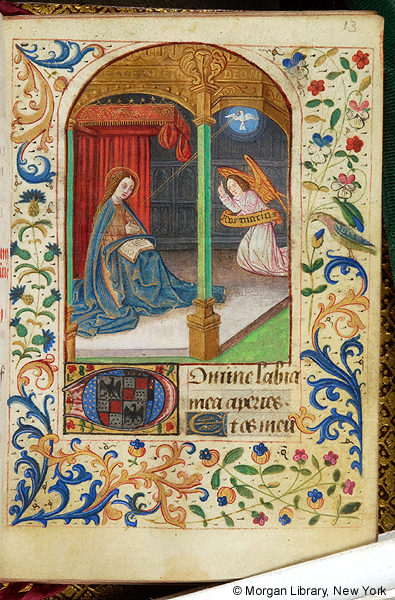 13
aue maria
Domine labia
mea aperies.
Et os meū
© Morgan Library, New York